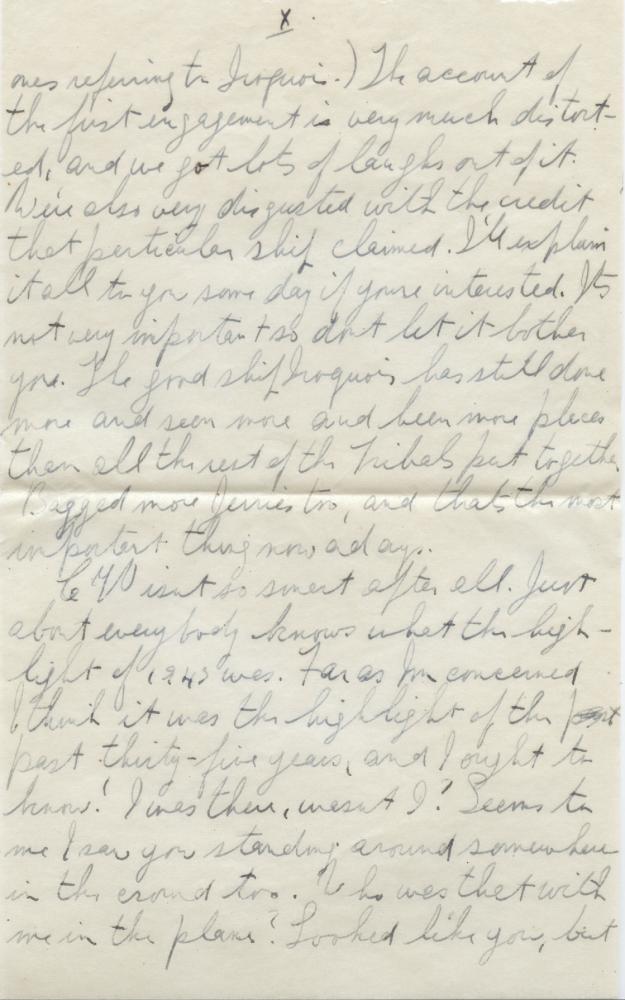 X.
ones referring to Iroquois.) The account of
the first engagement is very much distort-
ed, and we got lots of laughs out of it.
We're also very disgusted with the credit
that particular ship claimed. I'll explain
it all to you some day if youre interested. Its
not very important so dont let it bother
you. The good ship Iroquois has still done
more and seen more and been more places
than all the rest of the Tribals put together
Bagged more Jerries too, and thats the most
important thing now adays.
isnt so smart after all. Just
about everybody knows what the high-
light of 1943 was. Far as Im concerned
I think it was the highlight of the
past thirty-five years, and I ought to
know! I was there, wasnt I? Seems to
me I saw you standing around somewhere
in the crowd too. Who was that with
me in the plane? Looked like you, but